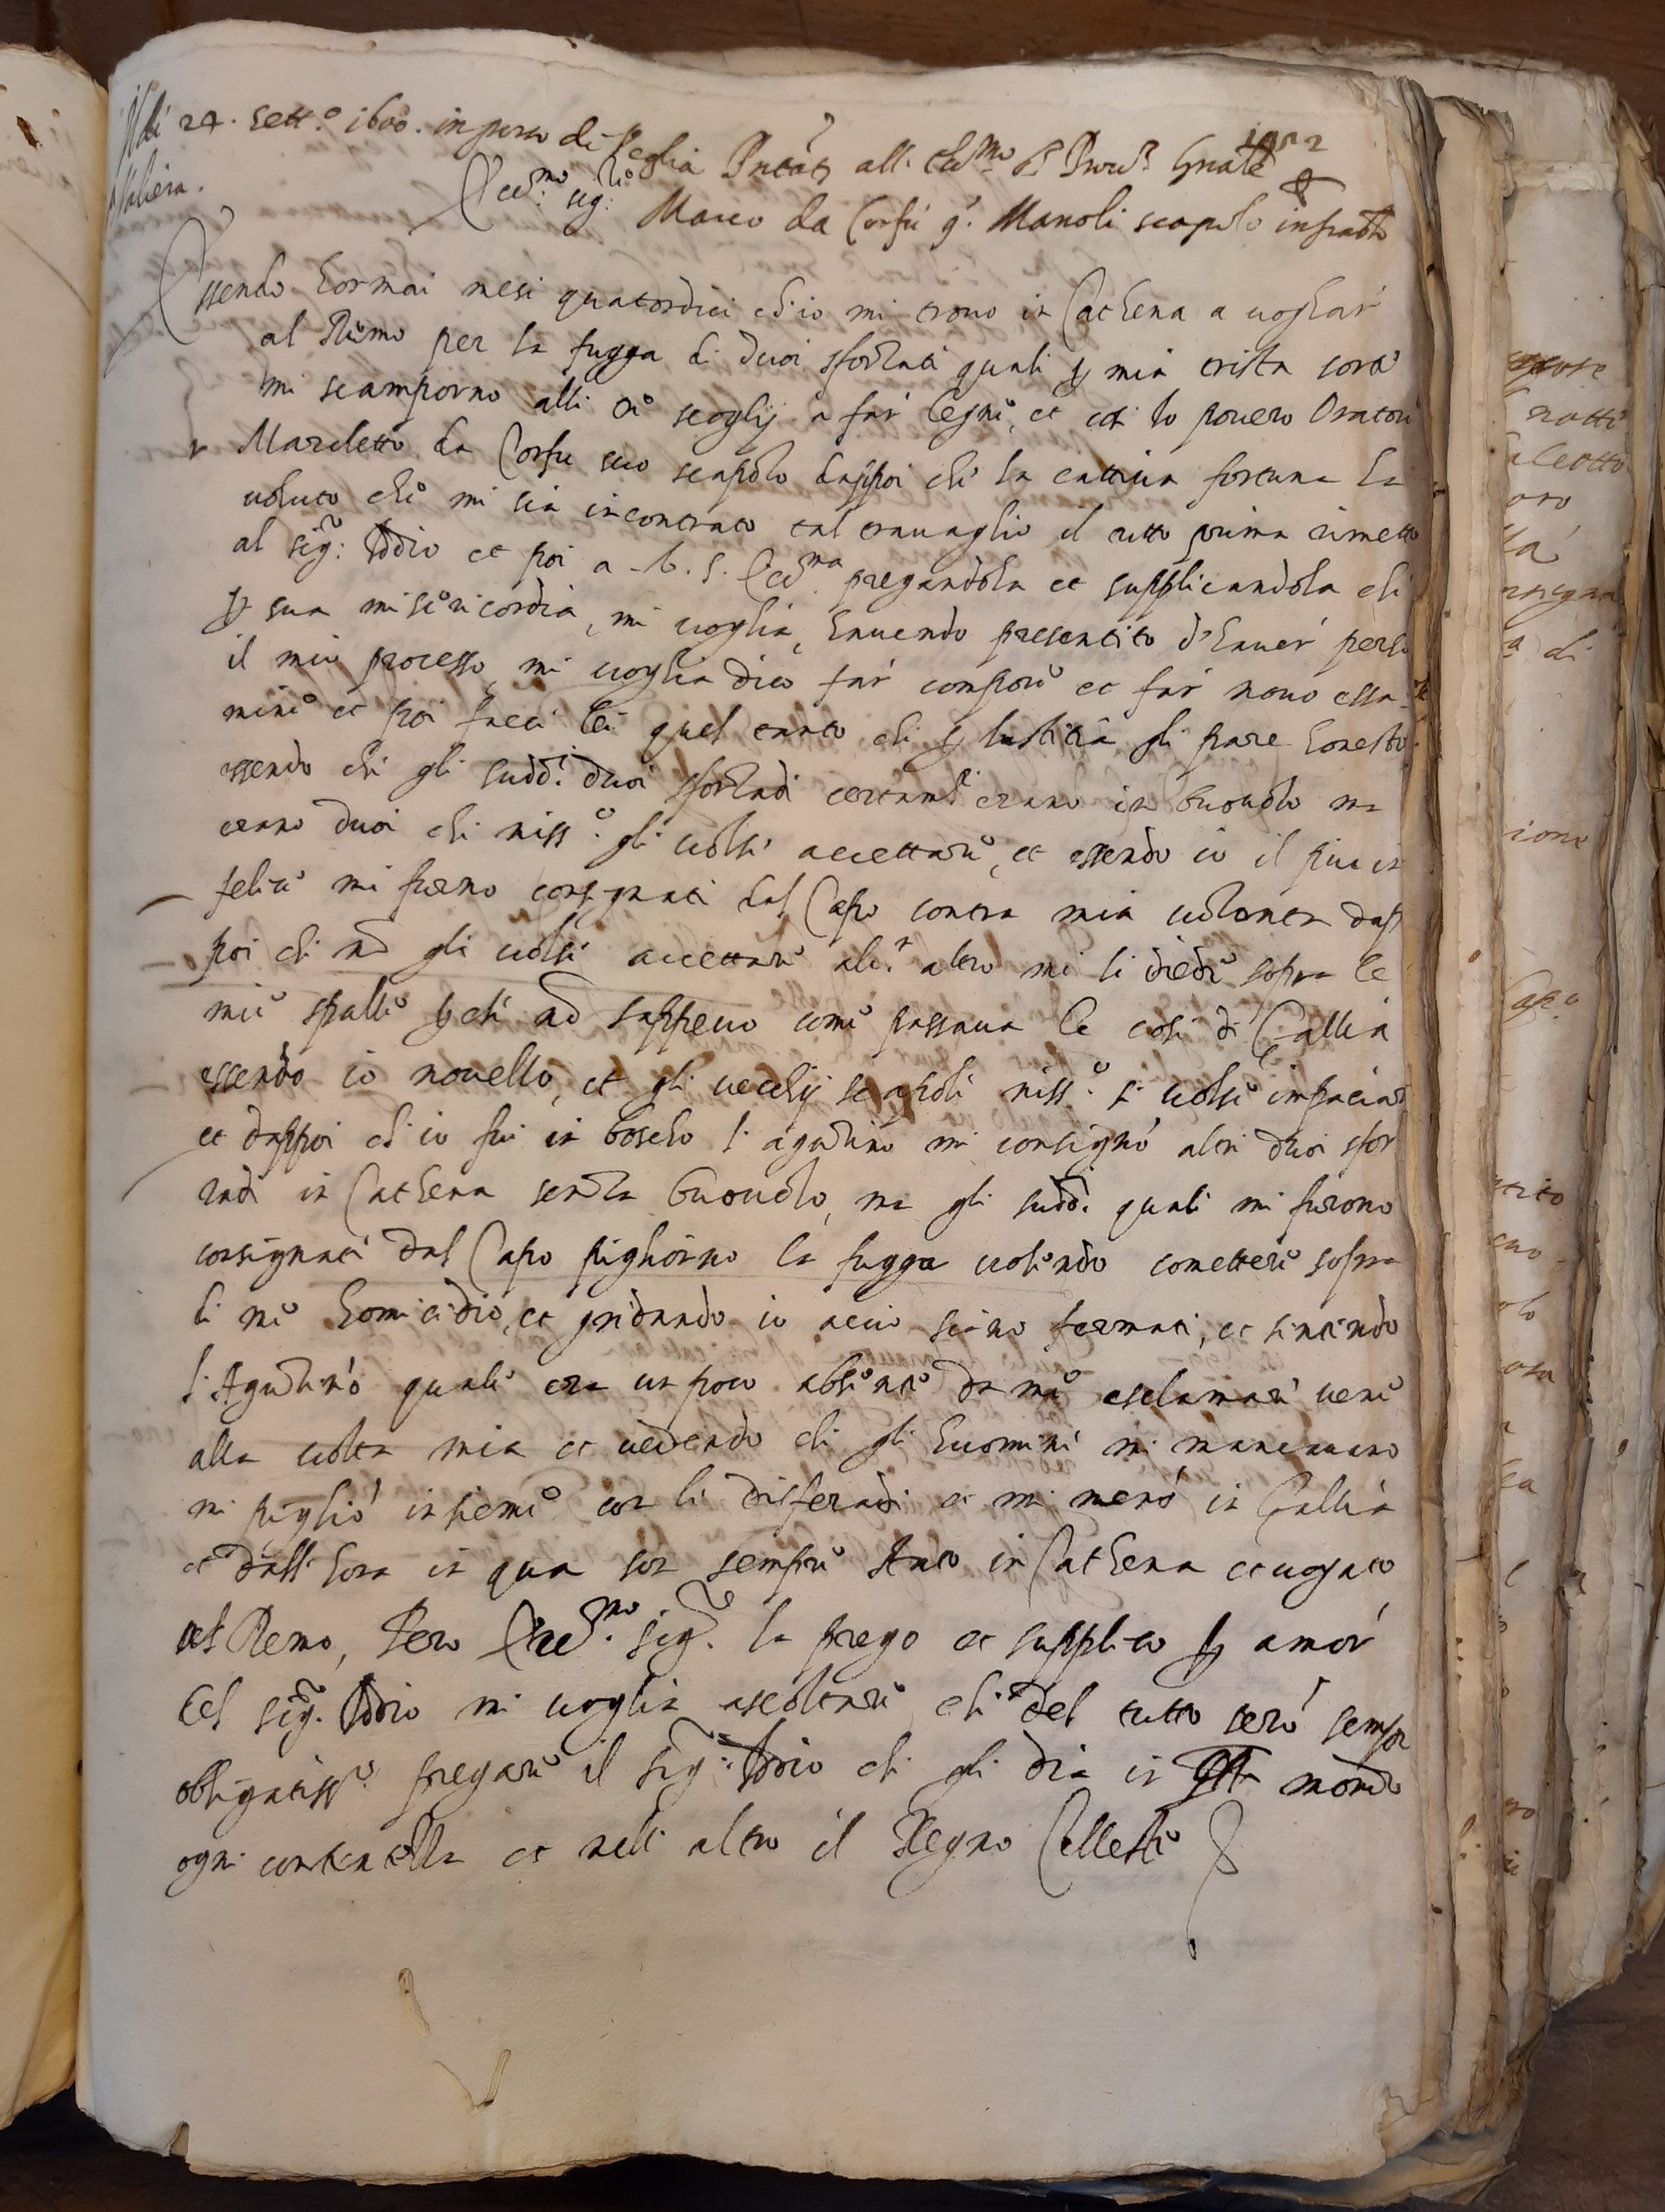 Adi 24. Sett.º 1600. in porto di Veglia Pntat. all. Ecc.mo S.r Prov.r Gnale
Ecc.mo sig.re Marco da Corfù q. Manoli scapolo infratto
Essendo hormai mesi quatordici ch'io mi trovo in Cathena a vogar'
al Remo per la fugga di duoi sforzati quali p mia trista sorte
mi scamporno alli scoglij a far legne, et io povero Oratore
Marchetto da Corfu suo scapolo dappoi che la cattiva fortuna ha
voluto che mi sia incontrato tal travaglio il tutto prima rimetto
al sig.r Iddio et poi a V. S. Ecc.ma pregandola et supplicandola che
p sua misericordia, mi voglia, havendo presentito d'haver perso
il mio processo, mi voglia dico far compore et far novo essa-
mine et poi facci lei quel tanto che p Iustitia gli pare honesto.
essendo che gli sudd.i duoi sforzadi certam.te erano in buovolo ma
erano duoi che niss.º gli volse accettare, et essendo io il piu in
felice mi furno consignati dal Capo contra mia volonta dap
poi che nõ gli volse accettare alc.º altro mi li diede sopra le
mie spalle pche nõ sappevo come passava le cose di Gallia
essendo io novello, et gli vecchij scapoli niss.º si volse impaciar
et dappoi ch'io fui in boscho l'aguzino mi consignò altri duoi sfor
zadi in Cathena senza buovolo, ma gli sudd.i quali mi furono
consignati dal Capo pigliorno la fugga volendo comettere sopra
di me homicidio, et gridando io acciò siano fermati, et sentendo
l'Aguzino quale era un poco absente da me esclamare vene
alla volta mia et vedendo che gli huomini mi mancavano
mi pigliò insieme con li disferadi et mi menò in Gallia
et dall'hora in qua son sempre stato in Cathena et vogato
al Remo, Però Ecc.mo sig.r la prego et supplico p amor
del sig.r Iddio mi voglia ascoltare che del tutto serò sempre
obligatiss.º pregare il sig.r Iddio che gli dia in q.to mondo
ogni contentezza et nell'altro il Regno Celleste